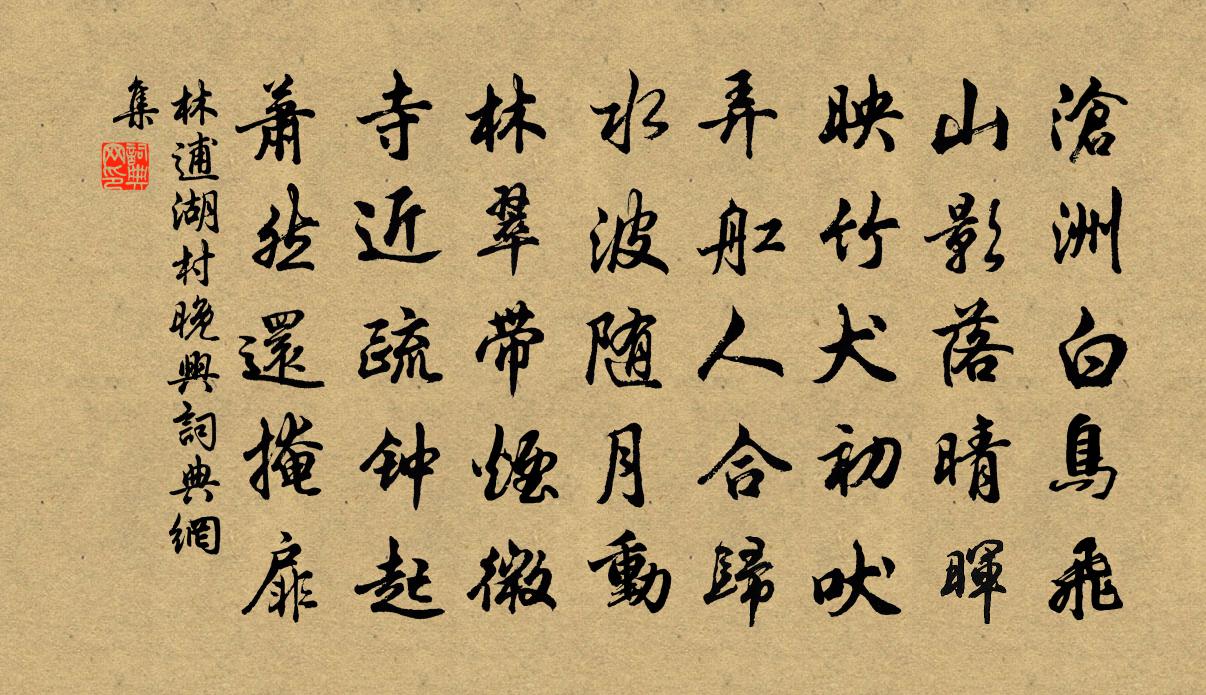 滄洲白鳥飛
山影落晴暉
映竹犬初吠
弄舡人合歸
水波随月動
林翠帶煙微
寺近疏钟起
蕭然還掩扉
林逋湖村晚興詞典網
集
詞典网印